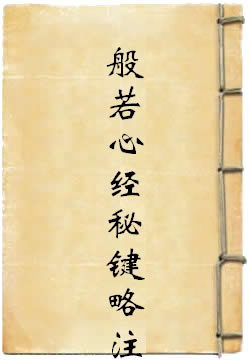 般若心经秘键略注